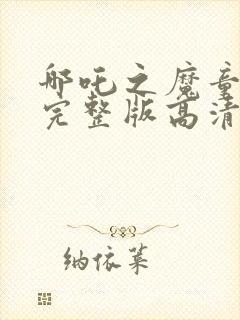 哪吒之魔童
完整版高清
纳依莱